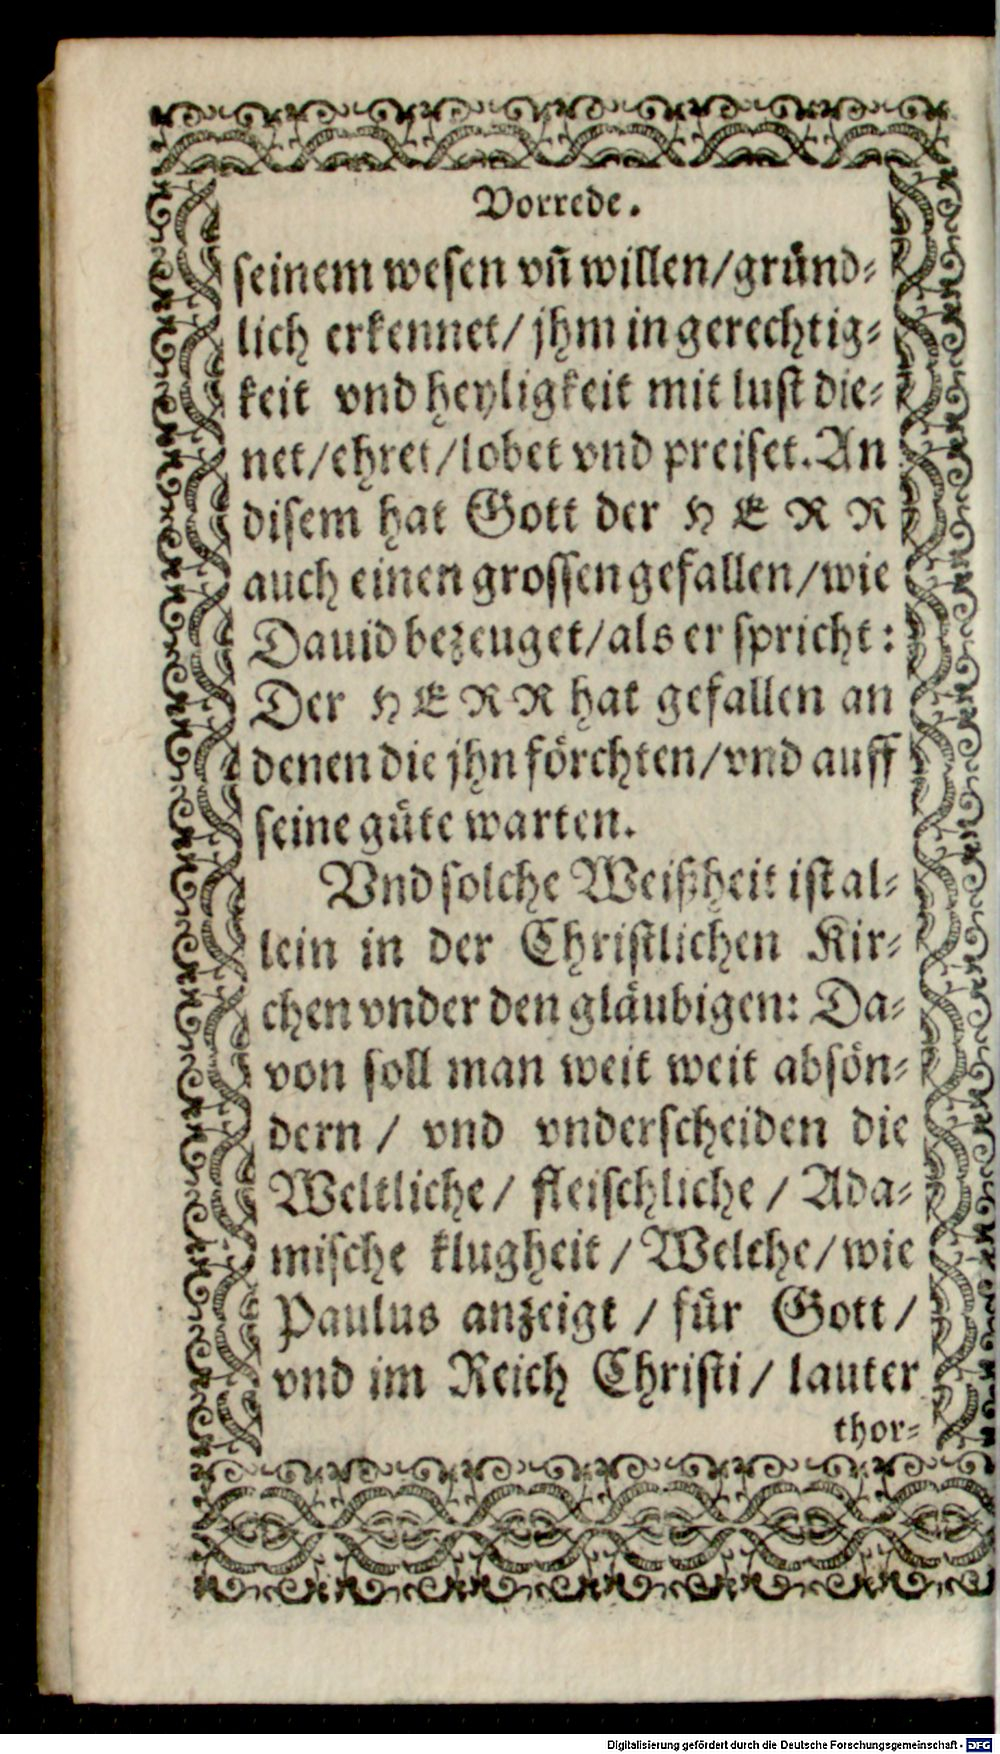 Vorrede.
seinem wesen vñ willen/gründ-
lich erkennet/ jhm in gerechtig-
keit vnd heyligkeit mit lust die-
net/ehret/lobet vnd preiset. An
disem hat Gott der HERR
auch einen grossen gefallen/wie
Dauid bezeuget/als er spricht:
Der HERR hat gefallen an
denen die jhn förchten/vnd auff
seine güte warten.
Vnd solche Weißheit ist al-
lein in der Christlichen Kir-
chen vnder den gläubigen: Da-
von soll man weit weit absön-
dern / vnd vnderscheiden die
Weltliche/ fleischliche / Ada-
mische klugheit / Welche/wie
Paulus anzeigt / für Gott/
vnd im Reich Christi/ lauter
thor-
Digitalisierung gefördert durch die Deutsche Forschungsgemeinschaft - DFG